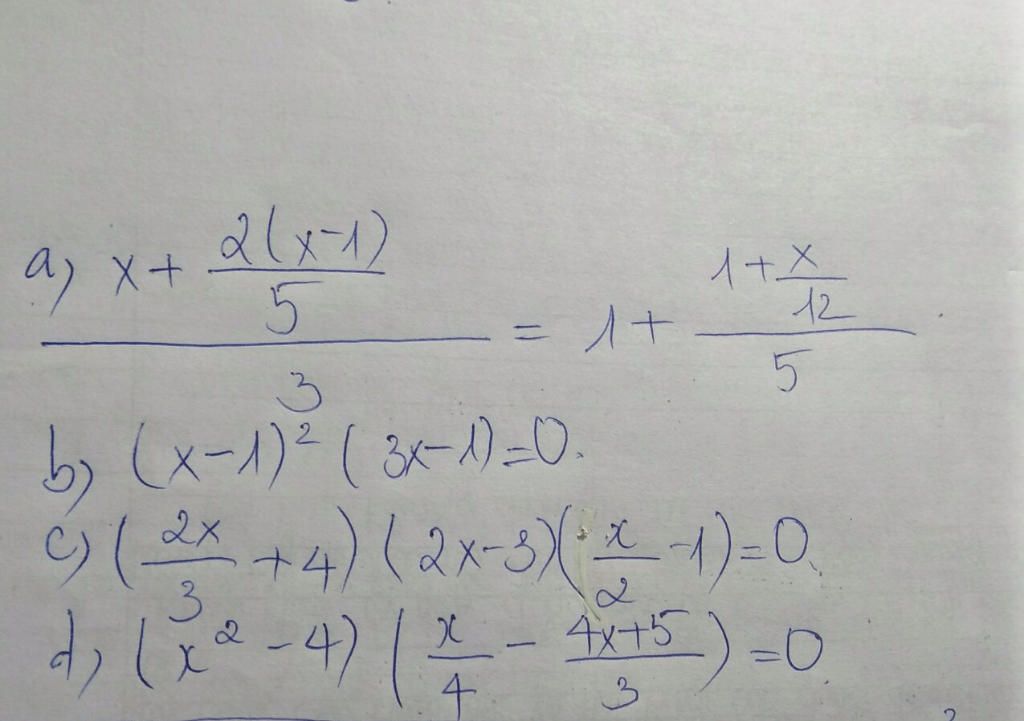 a) (x + 2(x-1)/5)/3 = 1 + (1 + x/12)/5
b) (x-1)² (3x-1)=0.
c) (2x/3 + 4) (2x-3)(x/2 -1)=0.
d) (x² - 4) (x/4 - (4x+5)/3)=0